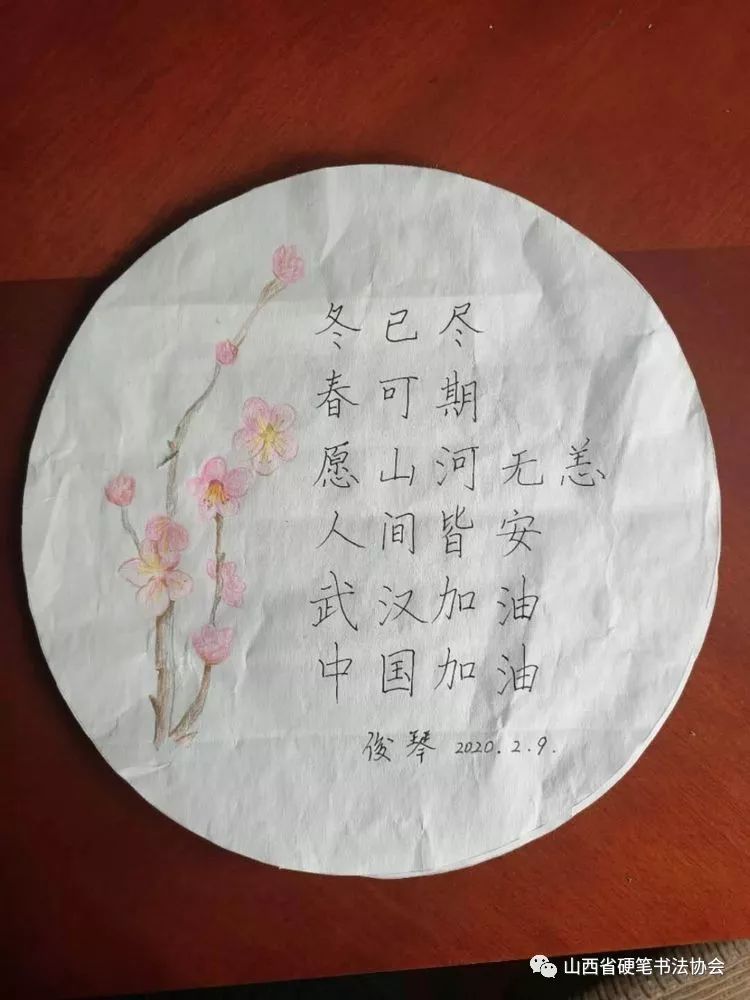 冬已尽
春可期
愿山河无恙
人间皆安
武汉加油
中国加油
俊琴 2020.2.9.
山西省硬笔书法协会